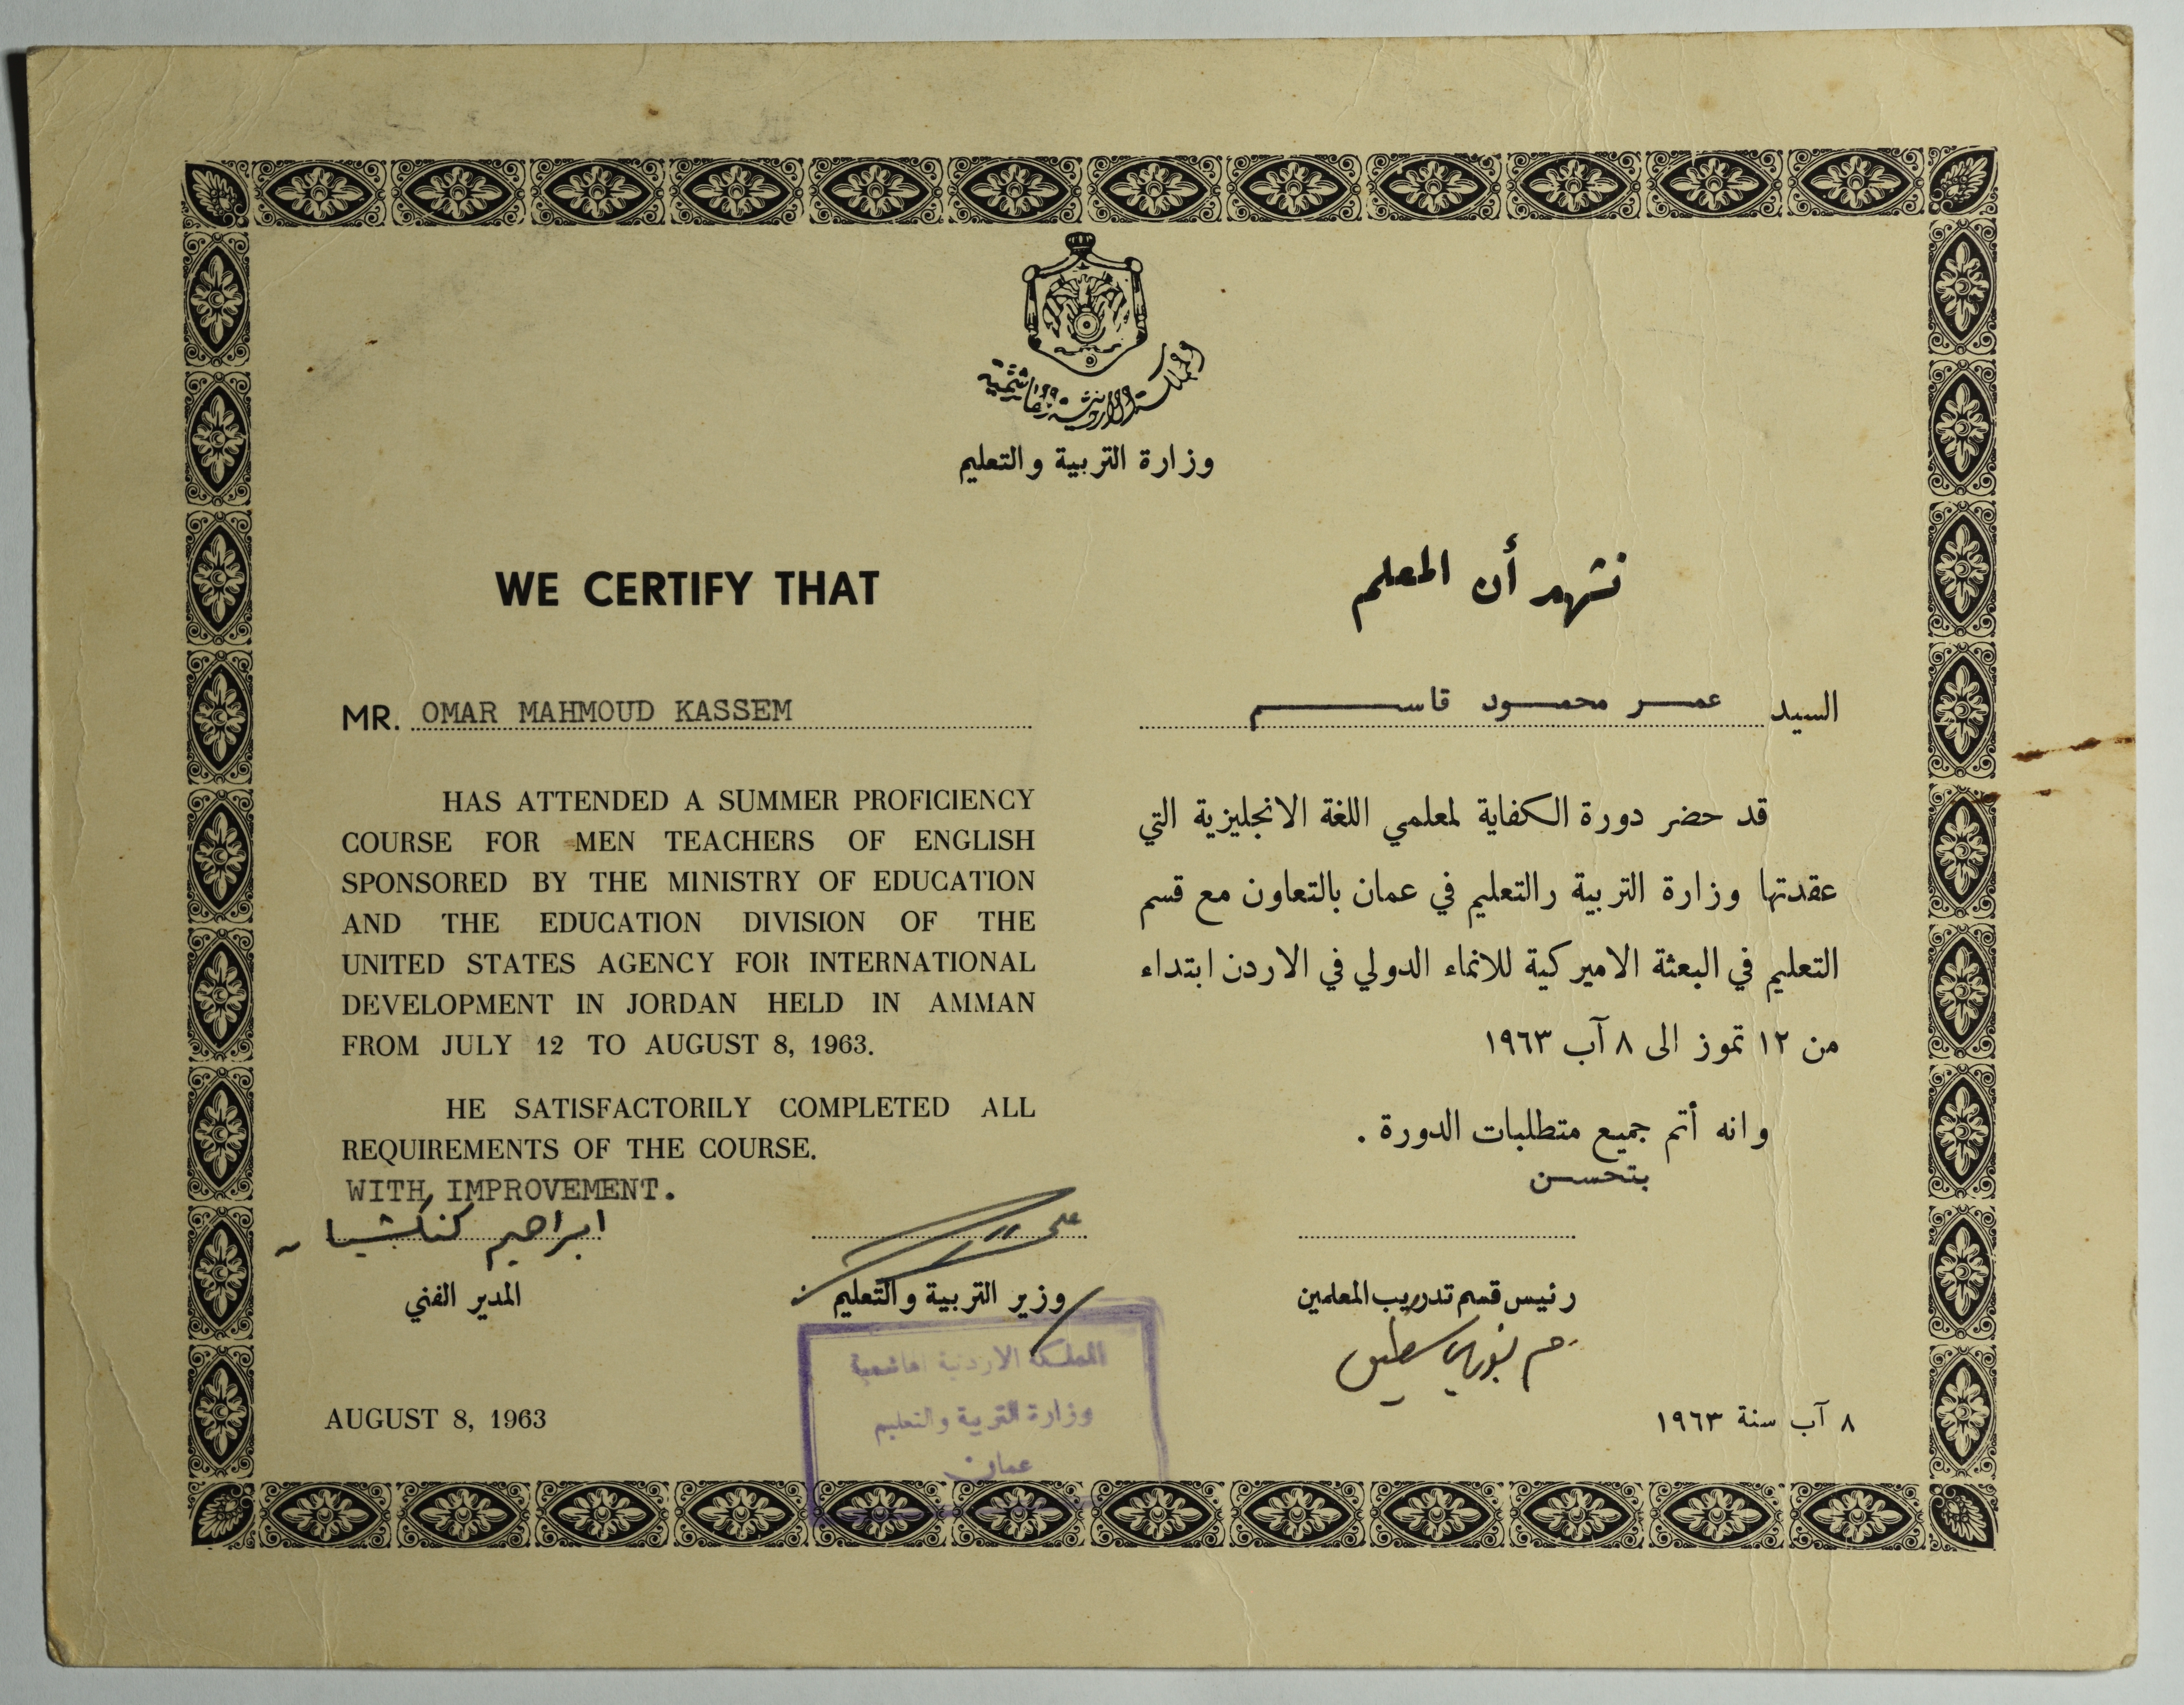 المملكة الأردنية الهاشمية
وزارة التربية والتعليم
WE CERTIFY THAT
MR. OMAR MAHMOUD KASSEM
HAS ATTENDED A SUMMER PROFICIENCY
COURSE FOR MEN TEACHERS OF ENGLISH
SPONSORED BY THE MINISTRY OF EDUCATION
AND THE EDUCATION DIVISION OF THE
UNITED STATES AGENCY FOR INTERNATIONAL
DEVELOPMENT IN JORDAN HELD IN AMMAN
FROM JULY 12 TO AUGUST 8, 1963.
HE SATISFACTORILY COMPLETED ALL
REQUIREMENTS OF THE COURSE.
WITH IMPROVEMENT.
نشهد أن المعلم
السيد عمر محمود قاسم
قد حضر دورة الكفاية لمعلمي اللغة الانجليزية التي
عقدتها وزارة التربية رالتعليم في عمان بالتعاون مع قسم
التعليم في البعثة الاميركية للانماء الدولي في الاردن ابتداء
من ١٢ تموز الى ٨ آب ١٩٦٣
وانه أتم جميع متطلبات الدورة .
بتحسن
رئيس قسم تدريب المعلمين
وزير التربية والتعليم
ابراهيم
المدير الفني
المملكة الاردنية الهاشمية
وزارة التربية والتعليم
عمان
AUGUST 8, 1963
٨ آب سنة ١٩٦٣